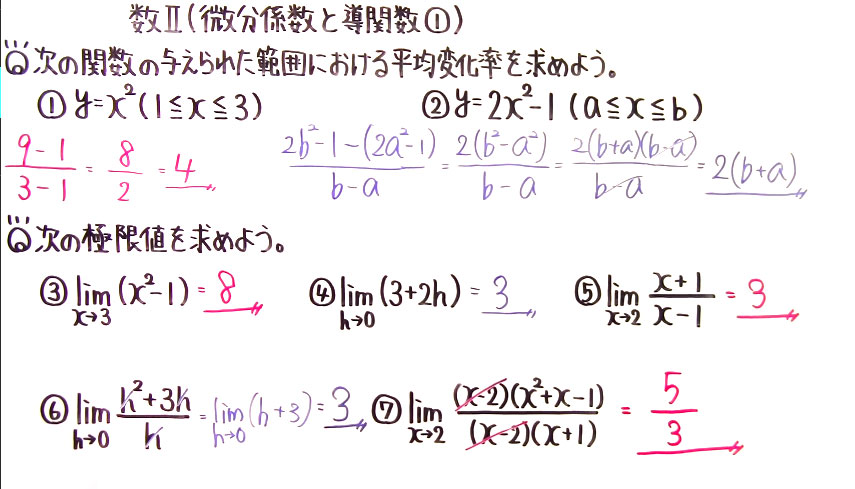 数Ⅱ(微分係数と導関数①)
Q次の関数の与えられた範囲における平均変化率を求めよう。
① y=x²(1≦x≦3) ② y=2x²-1 (a≦x≦b)
(9-1)/(3-1) = 8/2 = 4 (2b²-1-(2a²-1))/(b-a) = 2(b²-a²)/(b-a) = 2(b+a)(b-a)/(b-a) = 2(b+a)
Q次の極限値を求めよう。
③ lim x→3 (x²-1) = 8 ④ lim h→0 (3+2h) = 3 ⑤ lim x→2 (x+1)/(x-1) = 3
⑥ lim h→0 (h²+3h)/h = lim h→0 (h+3) = 3 ⑦ lim x→2 (x-2)(x²+x-1)/(x-2)(x+1) = 5/3